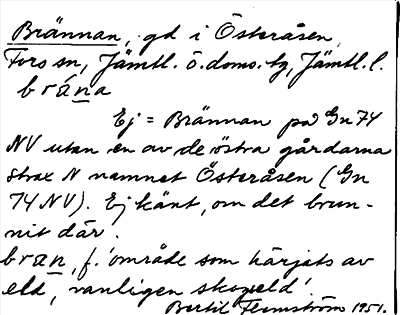 Brännan, gd i Österåsen,
Fors sn, Jämtl. ö. doms. tg, Jämtl. l.
brána
Ej = Brännan på Gn 74
NV utan en av de östra gårdarna
strax N namnet Österåsen (Gn
74 NV). Ej känt, om det brun-
nit där.
bran, f. 'område som härjats av
eld, vanligen skogseld'.
Bertil Flemström 1951.